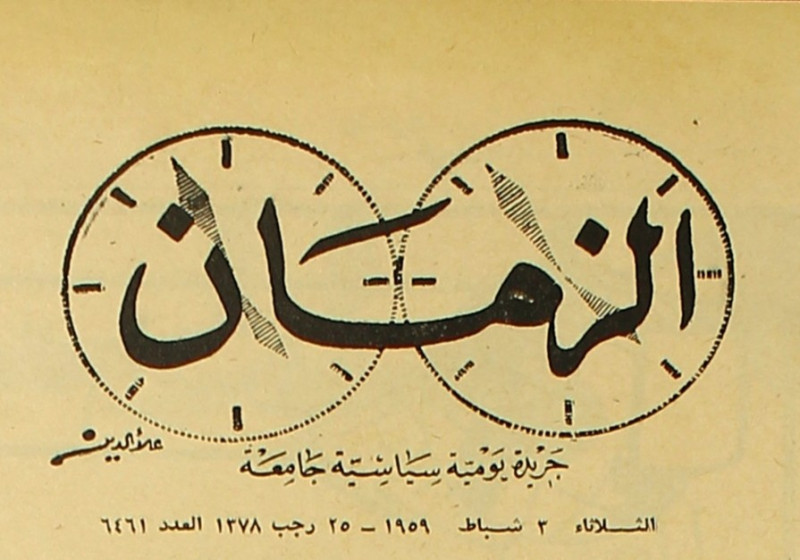 الزمان
علاء الدين
جَرِيدَة يَوْمِيَّة سِيَاسِيَّة جَامِعَة
الثلاثاء ٣ شباط ١٩٥٩ – ٢٥ رجب ١٣٧٨ العدد ٦٤٦١